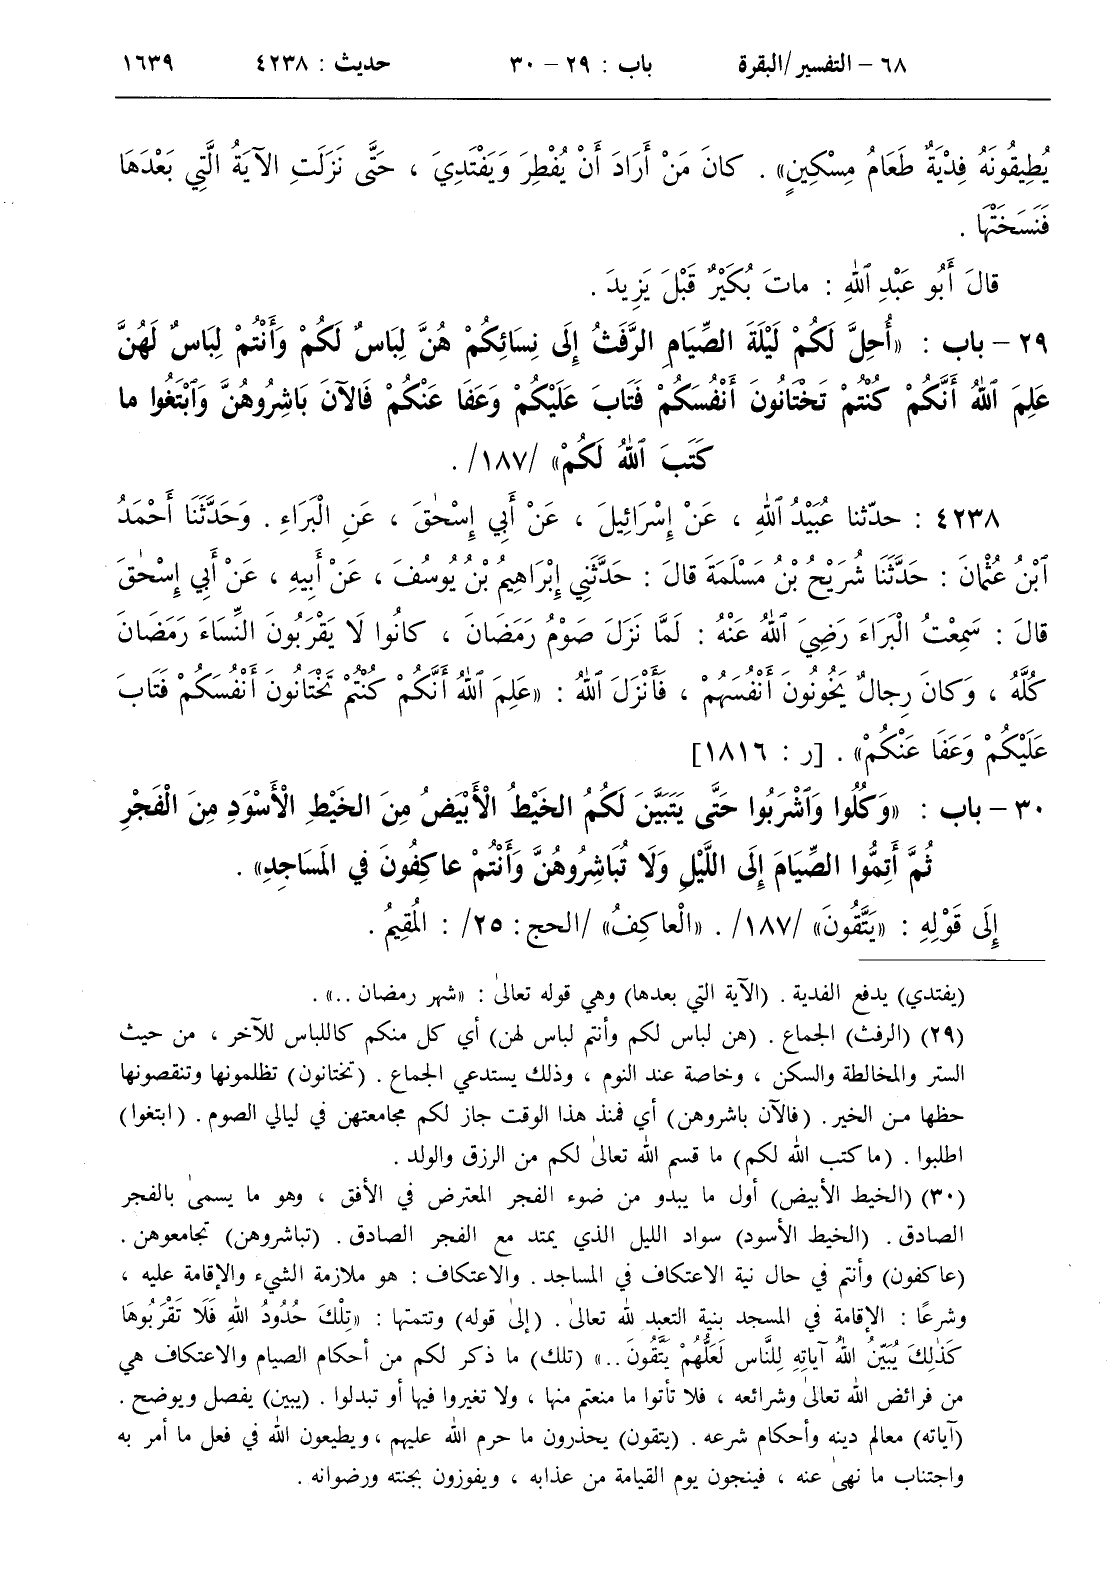 ٦٨ – التفسير/البقرة باب : ٢٩ – ٣٠ حديث : ٤٢٣٨ ١٦٣٩
يُطِيقُونَهُ فِدْيَةٌ طَعَامُ مِسْكِينٍ» . كانَ مَنْ أَرَادَ أَنْ يُفْطِرَ وَيَفْتَدِيَ ، حَتَّى نَزَلَتِ الآيَةُ الَّتِي بَعْدَهَا
فَنَسَخَتْهَا .
قالَ أَبُو عَبْدِ ٱللهِ : ماتَ بُكَيْرٌ قَبْلَ يَزِيدَ .
٢٩ – باب : «أُحِلَّ لَكُمْ لَيْلَةَ الصِّيَامِ الرَّفَثُ إِلَى نِسَائِكُمْ هُنَّ لِبَاسٌ لَكُمْ وَأَنْتُمْ لِبَاسٌ لَهُنَّ
عَلِمَ ٱللهُ أَنَّكُمْ كُنْتُمْ تَخْتَانُونَ أَنْفُسَكُمْ فَتَابَ عَلَيْكُمْ وَعَفَا عَنْكُمْ فَالآنَ بَاشِرُوهُنَّ وَٱبْتَغُوا ما
كَتَبَ ٱللهُ لَكُمْ» /١٨٧/ .
٤٢٣٨ : حدّثنا عُبَيْدُ ٱللهِ ، عَنْ إِسْرَائِيلَ ، عَنْ أَبِي إِسْحٰقَ ، عَنِ الْبَرَاءِ . وَحَدَّثَنَا أَحْمَدُ
ٱبْنُ عُثْمانَ : حَدَّثَنَا شُرَيْحُ بْنُ مَسْلَمَةَ قالَ : حَدَّثَنِي إِبْرَاهِيمُ بْنُ يُوسُفَ ، عَنْ أَبِيهِ ، عَنْ أَبِي إِسْحٰقَ
قالَ : سَمِعْتُ الْبَرَاءَ رَضِيَ ٱللهُ عَنْهُ : لَمَّا نَزَلَ صَوْمُ رَمَضَانَ ، كانُوا لَا يَقْرَبُونَ النِّسَاءَ رَمَضَانَ
كُلَّهُ ، وَكانَ رِجالٌ يَخُونُونَ أَنْفُسَهُمْ ، فَأَنْزَلَ ٱللهُ : «عَلِمَ ٱللهُ أَنَّكُمْ كُنْتُمْ تَخْتَانُونَ أَنْفُسَكُمْ فَتَابَ
عَلَيْكُمْ وَعَفَا عَنْكُمْ» . [ر : ١٨١٦]
٣٠ – باب : «وَكُلُوا وَٱشْرَبُوا حَتَّى يَتَبَيَّنَ لَكُمُ الخَيْطُ الْأَبْيَضُ مِنَ الخَيْطِ الْأَسْوَدِ مِنَ الْفَجْرِ
ثُمَّ أَتِمُّوا الصِّيَامَ إِلَى اللَّيْلِ وَلَا تُبَاشِرُوهُنَّ وَأَنْتُمْ عاكِفُونَ في المَسَاجِدِ» .
إِلَى قَوْلِهِ : «يَتَّقُونَ» /١٨٧/ . «الْعاكِفُ» /الحج: ٢٥/ : المُقِيمُ .
(يفتدي) يدفع الفدية . (الآية التي بعدها) وهي قوله تعالىٰ : «شهر رمضان ..» .
(٢٩) (الرفث) الجماع . (هن لباس لكم وأنتم لباس لهن) أي كل منكم كاللباس للآخر ، من حيث
الستر والمخالطة والسكن ، وخاصة عند النوم ، وذلك يستدعي الجماع . (تختانون) تظلمونها وتنقصونها
حظها من الخير . (فالآن باشروهن) أي فمنذ هذا الوقت جاز لكم مجامعتهن في ليالي الصوم . (ابتغوا)
اطلبوا . (ما كتب الله لكم) ما قسم الله تعالىٰ لكم من الرزق والولد .
(٣٠) (الخيط الأبيض) أول ما يبدو من ضوء الفجر المعترض في الأفق ، وهو ما يسمىٰ بالفجر
الصادق . (الخيط الأسود) سواد الليل الذي يمتد مع الفجر الصادق . (تباشروهن) تجامعوهن .
(عاكفون) وأنتم في حال نية الاعتكاف في المساجد . والاعتكاف : هو ملازمة الشيء والإقامة عليه ،
وشرعًا : الإقامة في المسجد بنية التعبد لله تعالىٰ . (إلىٰ قوله) وتتمتها : «تِلْكَ حُدُودُ اللهِ فَلَا تَقْرَبُوهَا
كَذٰلِكَ يُبَيِّنُ اللهُ آيَاتِهِ لِلنَّاسِ لَعَلَّهُمْ يَتَّقُونَ ..» (تلك) ما ذكر لكم من أحكام الصيام والاعتكاف هي
من فرائض الله تعالىٰ وشرائعه ، فلا تأتوا ما منعتم منها ، ولا تغيروا فيها أو تبدلوا . (يبين) يفصل ويوضح .
(آياته) معالم دينه وأحكام شرعه . (يتقون) يحذرون ما حرم الله عليهم ، ويطيعون الله في فعل ما أمر به
واجتناب ما نهىٰ عنه ، فينجون يوم القيامة من عذابه ، ويفوزون بجنته ورضوانه .